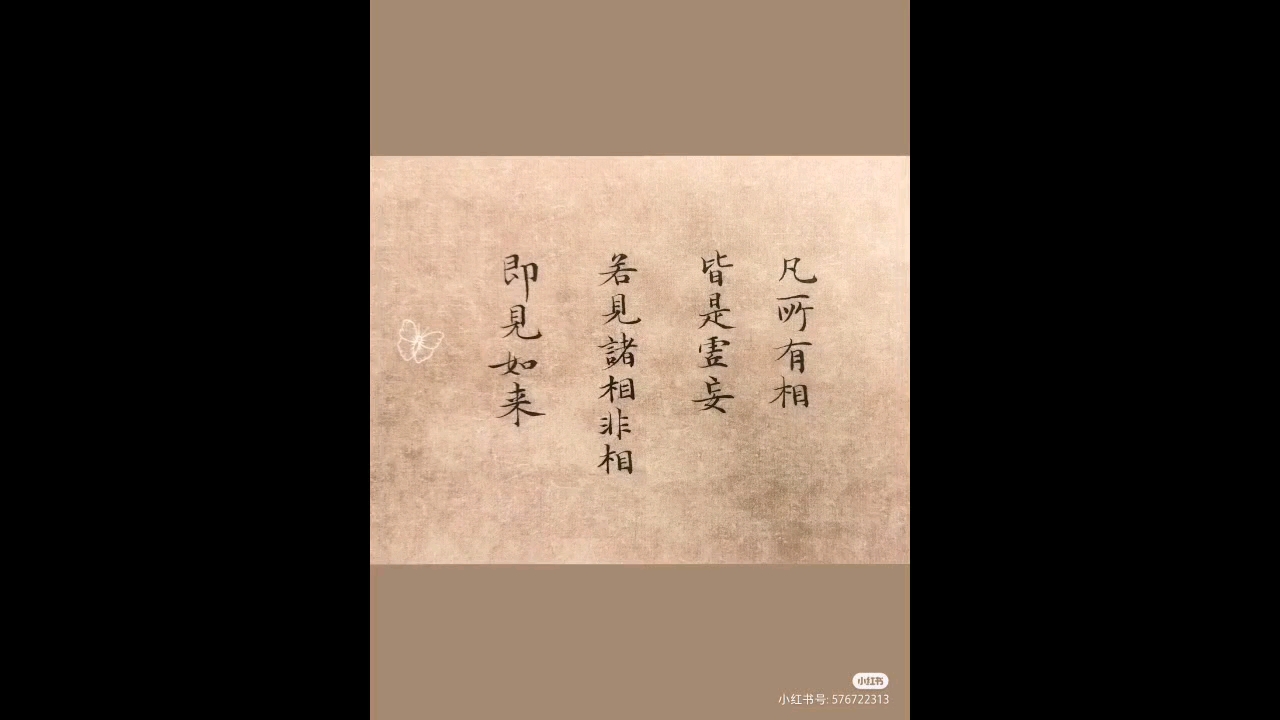 凡所有相
皆是虚妄
若見諸相非相
即見如来
小红书
小红书号: 576722313